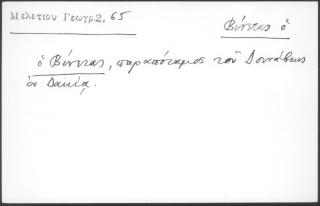 Μελετίου Γεωγρ. 2, 65
Βύντας ὁ
ὁ Βύντας, παραπόταμος τοῦ Δουνάβεως
ἐν Δακίᾳ.